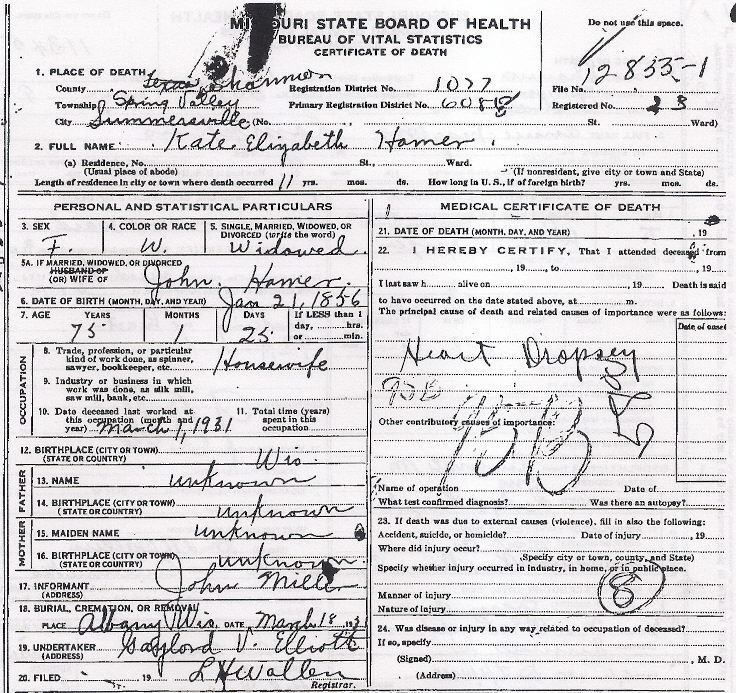 MISSOURI STATE BOARD OF HEALTH
Do not use this space.
BUREAU OF VITAL STATISTICS
CERTIFICATE OF DEATH
12835-1
1. PLACE OF DEATH
County Texas Shannon Registration District No. 1077 File No.
Township Spring Valley Primary Registration District No. 6088 Registered No. 23
City Summersville (No. St. Ward)
2. FULL NAME Kate Elizabeth Hamer.
(a) Residence, No. St., Ward.
(Usual place of abode) (If nonresident, give city or town and State)
Length of residence in city or town where death occurred 11 yrs. mos. ds. How long in U.S., if of foreign birth? yrs. mos. ds.
PERSONAL AND STATISTICAL PARTICULARS
3. SEX F. 4. COLOR OR RACE W. 5. SINGLE, MARRIED, WIDOWED, OR DIVORCED (write the word) Widowed.
5A. IF MARRIED, WIDOWED, OR DIVORCED
HUSBAND OF
(OR) WIFE OF John Hamer.
6. DATE OF BIRTH (MONTH, DAY, AND YEAR) Jan 21, 1856
7. AGE YEARS MONTHS DAYS If LESS than 1
75 1 25 day, hrs.
or min.
OCCUPATION
8. Trade, profession, or particular
kind of work done, as spinner,
sawyer, bookkeeper, etc. Housewife
9. Industry or business in which
work was done, as silk mill,
saw mill, bank, etc.
10. Date deceased last worked at
this occupation (month and
year) March 1, 1931
11. Total time (years)
spent in this
occupation
12. BIRTHPLACE (CITY OR TOWN)
(STATE OR COUNTRY) Wis.
FATHER
13. NAME unknown
14. BIRTHPLACE (CITY OR TOWN)
(STATE OR COUNTRY) unknown
MOTHER
15. MAIDEN NAME unknown
16. BIRTHPLACE (CITY OR TOWN)
(STATE OR COUNTRY) unknown
17. INFORMANT John Miller
(ADDRESS)
18. BURIAL, CREMATION, OR REMOVAL
PLACE Albany Wis. DATE March 18 1931
19. UNDERTAKER Gaylord V. Elliott
(ADDRESS)
20. FILED 19 L H Wallen
Registrar.
MEDICAL CERTIFICATE OF DEATH
21. DATE OF DEATH (MONTH, DAY, AND YEAR) , 19
22. I HEREBY CERTIFY, That I attended deceased from
, 19 , to , 19
I last saw h alive on , 19 Death is said
to have occurred on the date stated above, at m.
The principal cause of death and related causes of importance were as follows:
Date of onset
Heart Dropsey
95B
Other contributory causes of importance:
Name of operation Date of
What test confirmed diagnosis? Was there an autopsy?
23. If death was due to external causes (violence), fill in also the following:
Accident, suicide, or homicide? Date of injury , 19
Where did injury occur?
(Specify city or town, county, and State)
Specify whether injury occurred in industry, in home, or in public place.
Manner of injury 8
Nature of injury
24. Was disease or injury in any way related to occupation of deceased?
If so, specify
(Signed) , M. D.
(Address)